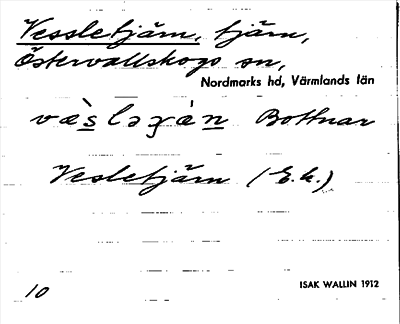 Vessletjärn, tjärn,
Östervallskogs sn,
Nordmarks hd, Värmlands län
Bottnar
Vesletjärn (E.k.)
10
ISAK WALLIN 1912